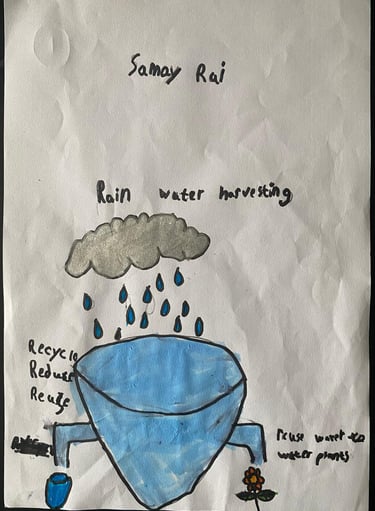 Samay Rai
Rain water harvesting
Recycle
Reduse
Reuse
reuse waret to
water plants